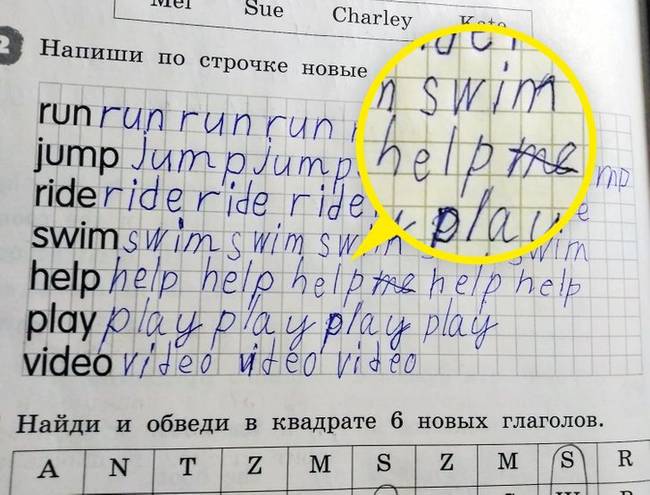 Mel Sue Charley Kate
2 Напиши по строчке новые
run run run run
jump jump jump mp
ride ride ride ride e
swim swim swim swim swim
help help help help me help help
play play play play play
video video video video
swim
help me
play
Найди и обведи в квадрате 6 новых глаголов.
A N T Z M S Z M S R